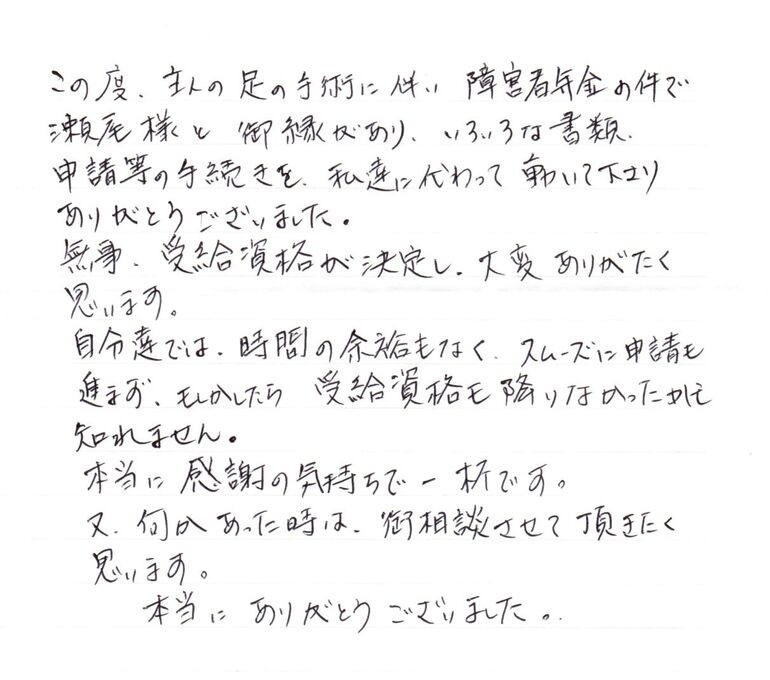 この度、主人の足の手術に伴い 障害者年金の件で
瀬尾様と 御縁があり、いろいろな書類、
申請等の手続きを、私達に代わって 動いて下さり
ありがとうございました。
無事、受給資格が決定し、大変 ありがたく
思います。
自分達では、時間の余裕もなく、スムーズに申請も
進まず、もしかしたら 受給資格も降りなかったかも
知れません。
本当に 感謝の気持ちで一杯です。
又、何かあった時は、御相談させて頂きたく
思います。
本当に ありがとうございました。